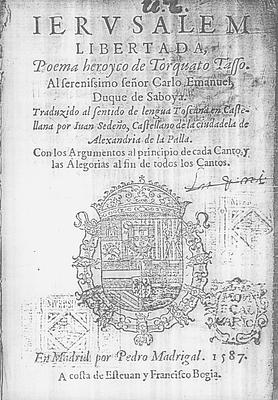 IERVSALEM
LIBERTADA,
Poema heroyco de Torquato Tasso.
Al serenissimo señor Carlo Emanuel,
Duque de Saboya.
Traduzido al sentido de lengua Toscana en Caste-
llana por Iuan Sedeño, Castellano de la ciudadela de
Alexandria de la Palla.
Con los Argumentos al principio de cada Canto, y
las Alegorias al fin de todos los Cantos.
En Madrid por Pedro Madrigal. 1587.
A costa de Esteuan y Francisco Bogia.